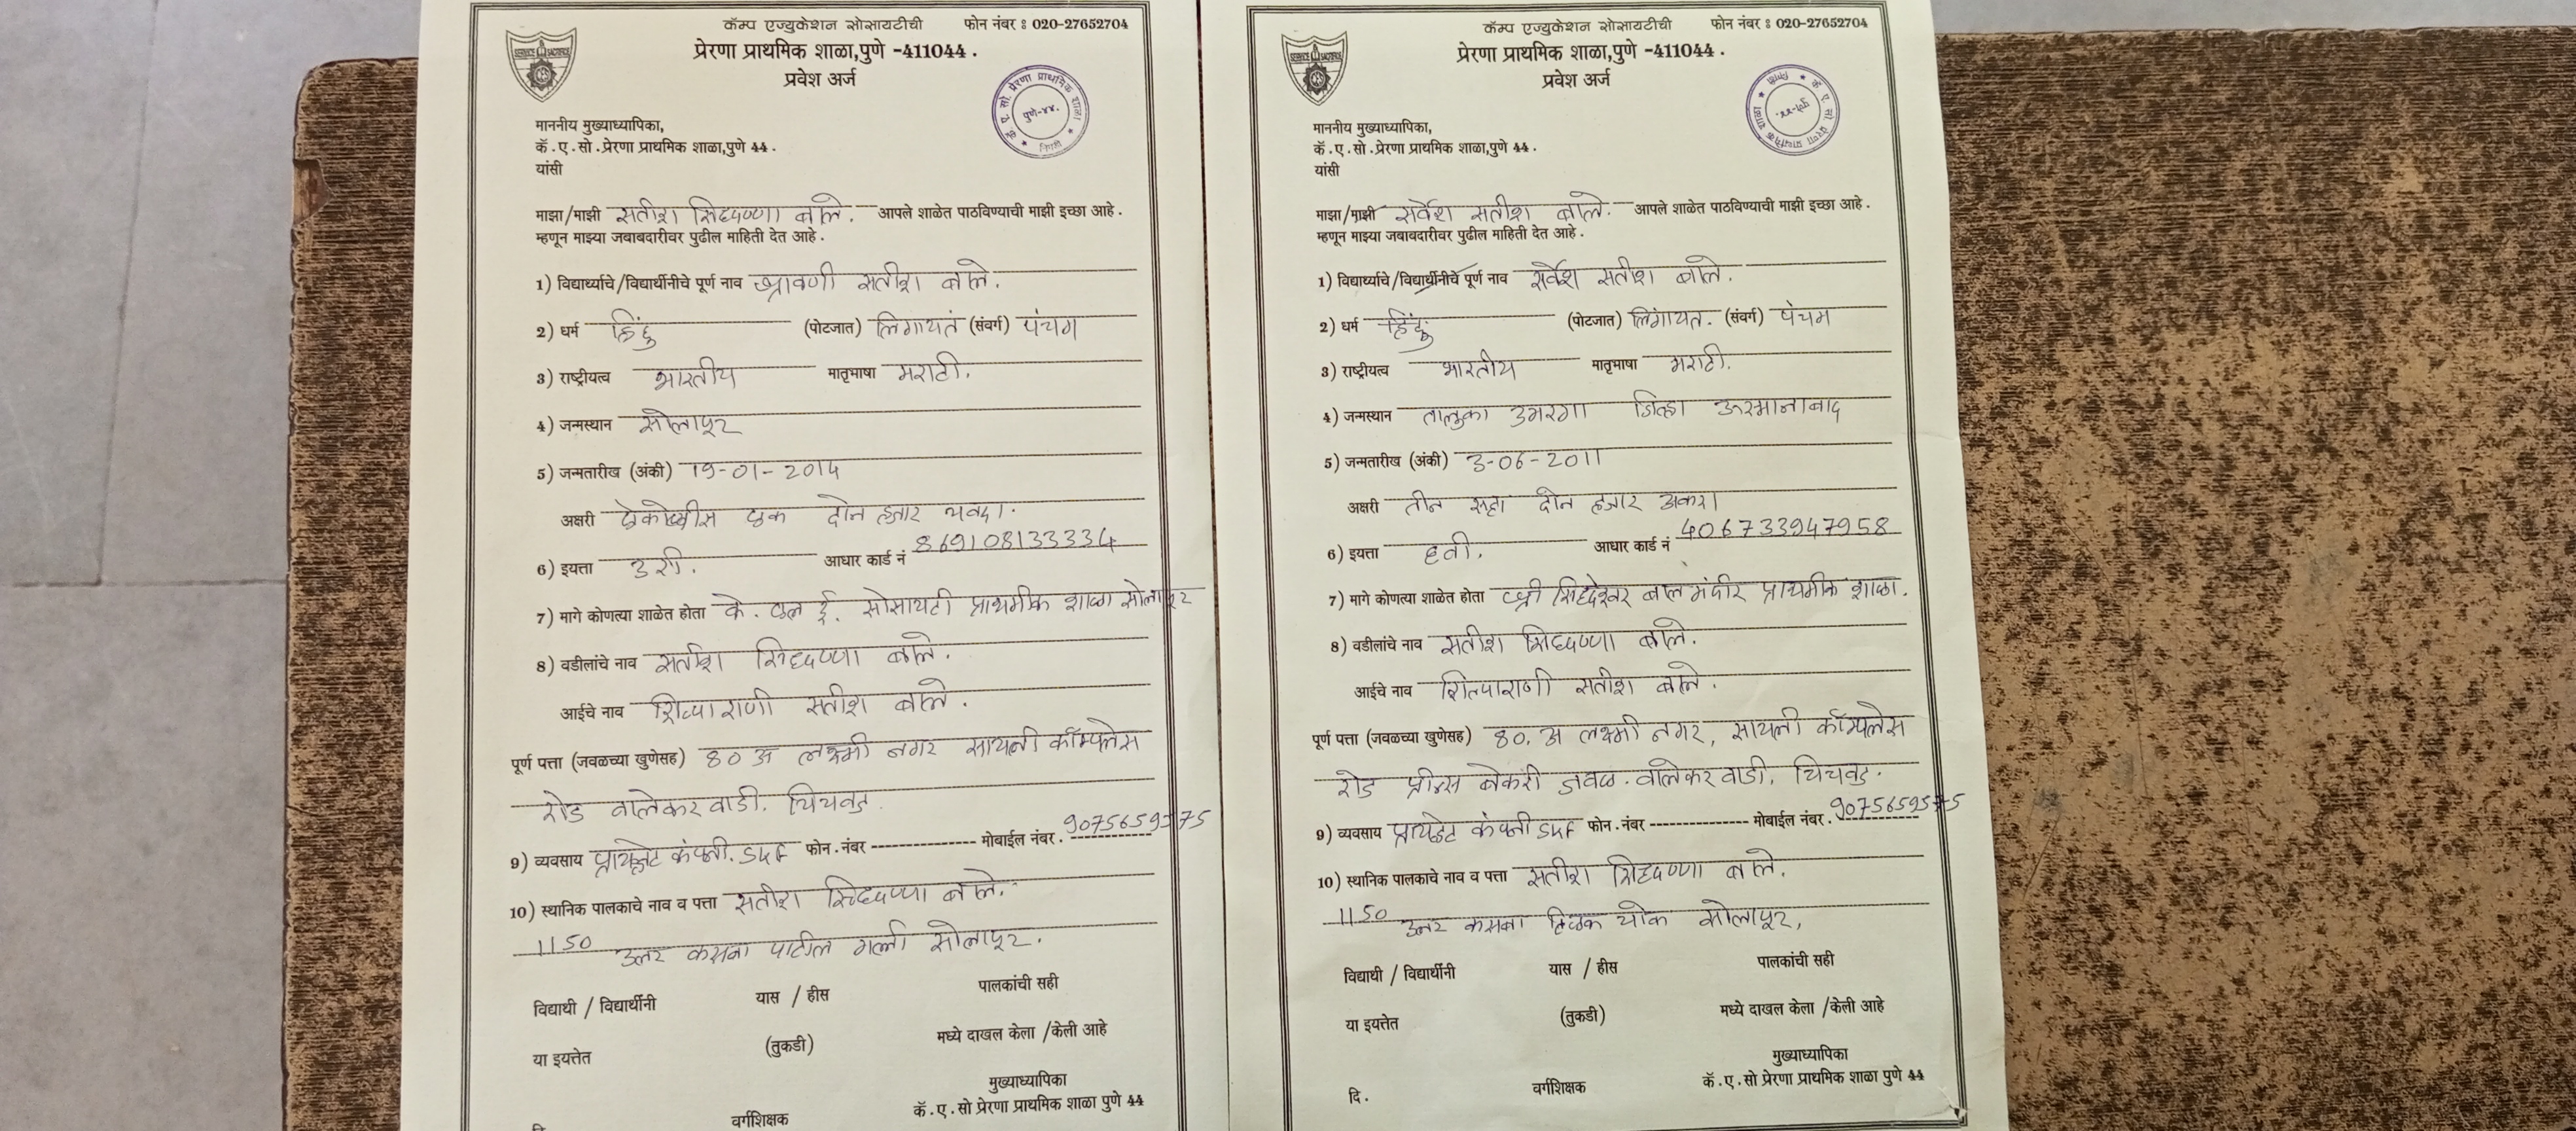 कॅम्प एज्युकेशन सोसायटीची फोन नंबर : 020-27652704
प्रेरणा प्राथमिक शाळा,पुणे -411044 .
प्रवेश अर्ज
माननीय मुख्याध्यापिका,
कॅ . ए . सो . प्रेरणा प्राथमिक शाळा,पुणे 44 .
यांसी
माझा/माझी सतीश सिध्दप्पा बोले. आपले शाळेत पाठविण्याची माझी इच्छा आहे .
म्हणून माझ्या जबाबदारीवर पुढील माहिती देत आहे .
1) विद्यार्थ्याचे/विद्यार्थीनीचे पूर्ण नाव श्रावणी सतीश बोले.
2) धर्म हिंदु (पोटजात) लिंगायत (संवर्ग) पंचम
3) राष्ट्रीयत्व भारतीय मातृभाषा मराठी.
4) जन्मस्थान सोलापूर
5) जन्मतारीख (अंकी) 19-01-2014
अक्षरी एकोणीस एक दोन हजार चवदा.
6) इयत्ता 3 री. आधार कार्ड नं 869108133334
7) मागे कोणत्या शाळेत होता के. एल ई. सोसायटी प्राथमीक शाळा सोलापूर
8) वडीलांचे नाव सतीश सिध्दप्पा बोले.
आईचे नाव शिल्पाराणी सतीश बोले.
पूर्ण पत्ता (जवळच्या खुणेसह) 80 अ लक्ष्मी नगर सायली कॉम्प्लेस
रोड वाल्हेकर वाडी. चिंचवड.
9) व्यवसाय प्रायव्हेट कंपनी. SKF फोन . नंबर मोबाईल नंबर . 9075659575
10) स्थानिक पालकाचे नाव व पत्ता सतीश सिध्दप्पा बोले.
1150 उत्तर कसबा पाटील गल्ली सोलापूर.
विद्याथी / विद्यार्थीनी यास / हीस पालकांची सही
या इयत्तेत (तुकडी) मध्ये दाखल केला /केली आहे
मुख्याध्यापिका
वर्गशिक्षक कॅ . ए . सो प्रेरणा प्राथमिक शाळा पुणे 44
कॅम्प एज्युकेशन सोसायटीची फोन नंबर : 020-27652704
प्रेरणा प्राथमिक शाळा,पुणे -411044 .
प्रवेश अर्ज
माननीय मुख्याध्यापिका,
कॅ . ए . सो . प्रेरणा प्राथमिक शाळा,पुणे 44 .
यांसी
माझा/माझी सर्वेश सतीश बोले. आपले शाळेत पाठविण्याची माझी इच्छा आहे .
म्हणून माझ्या जबाबदारीवर पुढील माहिती देत आहे .
1) विद्यार्थ्याचे/विद्यार्थीनीचे पूर्ण नाव सर्वेश सतीश बोले.
2) धर्म हिंदु (पोटजात) लिंगायत. (संवर्ग) पंचम
3) राष्ट्रीयत्व भारतीय मातृभाषा मराठी.
4) जन्मस्थान तालुका उमरगा जिल्हा ऊस्मानाबाद
5) जन्मतारीख (अंकी) 3-06-2011
अक्षरी तीन सहा दोन हजार अकरा
6) इयत्ता 6वी. आधार कार्ड नं 406733947958
7) मागे कोणत्या शाळेत होता श्री सिध्देश्वर बाल मंदीर प्राथमीक शाळा.
8) वडीलांचे नाव सतीश सिध्दप्पा बोले.
आईचे नाव शिल्पाराणी सतीश बोले.
पूर्ण पत्ता (जवळच्या खुणेसह) 80. अ लक्ष्मी नगर, सायली कॉम्प्लेस
रोड प्रीन्स बेकरी जवळ. वाल्हेकर वाडी. चिंचवड.
9) व्यवसाय प्रायव्हेट कंपनी SKF फोन . नंबर मोबाईल नंबर . 9075659575
10) स्थानिक पालकाचे नाव व पत्ता सतीश सिध्दप्पा बोले.
1150 उत्तर कसबा टिळक चौक सोलापूर,
विद्याथी / विद्यार्थीनी यास / हीस पालकांची सही
या इयत्तेत (तुकडी) मध्ये दाखल केला /केली आहे
मुख्याध्यापिका
दि . वर्गशिक्षक कॅ . ए . सो प्रेरणा प्राथमिक शाळा पुणे 44